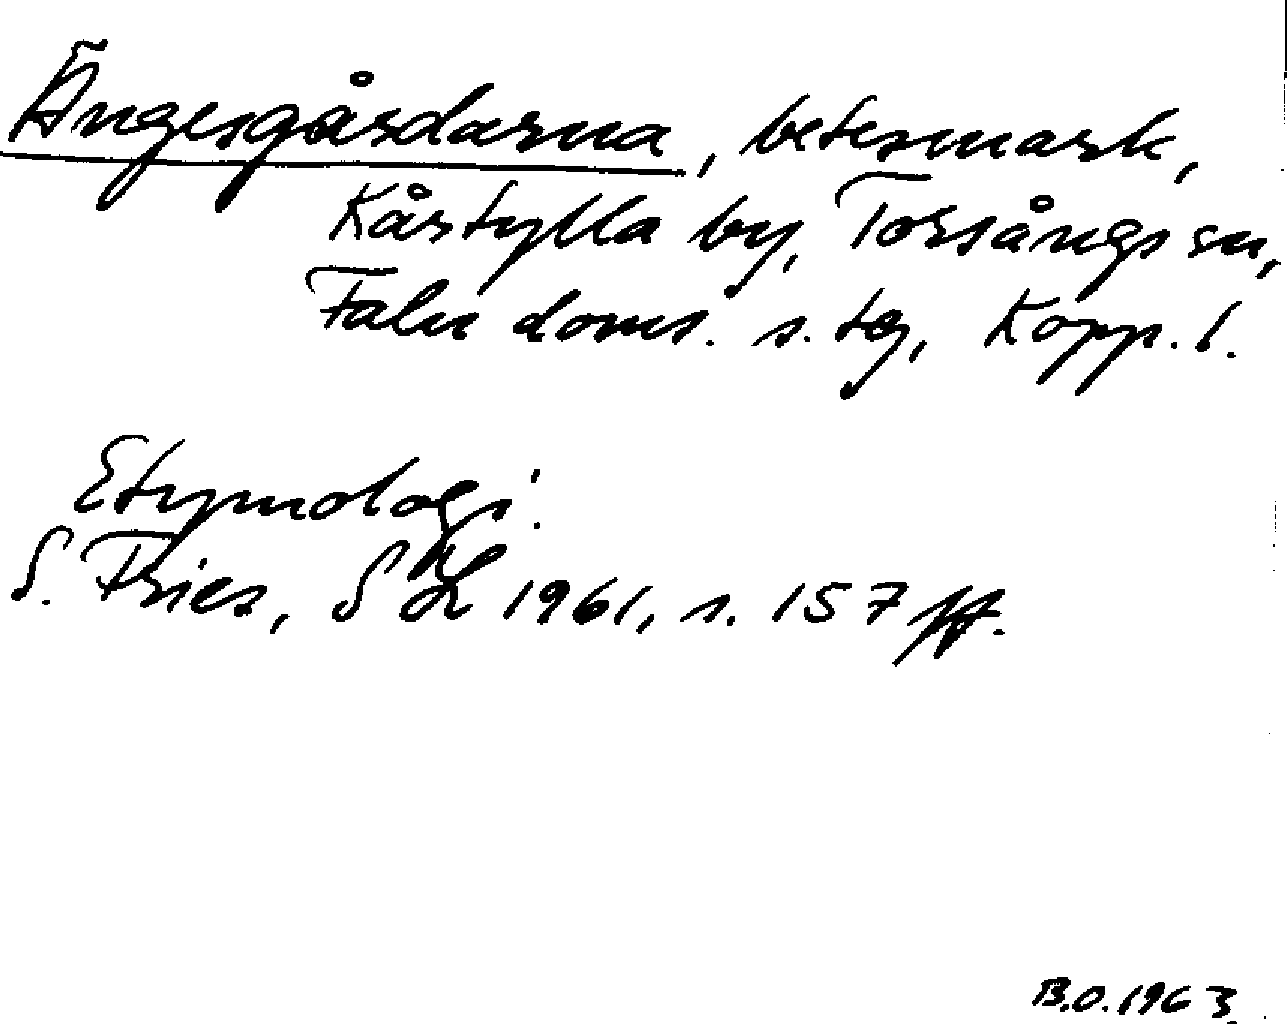 Ängesgårdarna, betesmark,
Kårtylla by, Torsångs sn,
Falu doms. s. tg, Kopp. l.
Etymologi.
S. Fries, SOÅ 1961, s. 157 ff.
B.O. 1963